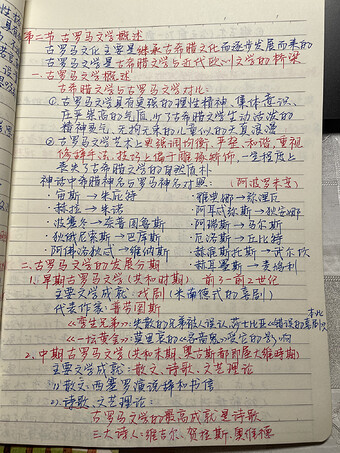 第二节 古罗马文学概述
古罗马文化主要是继承古希腊文化而逐步发展而来的
古罗马文学是古希腊文学与近代欧洲文学的桥梁
一.古罗马文学概述
古希腊文学与古罗马文学对比:
①古罗马文学具有更强的理性精神、集体意识、
庄严崇高的气质,少了古希腊文学生动活泼的
精神灵气、无拘无束的儿童似的天真浪漫
②古罗马文学艺术上更强调均衡、严整、和谐,重视
修辞手法,技巧上偏于雕琢矫饰,一定程度上
丧失了古希腊文学的自然质朴
神话中希腊神名与罗马神名对照 (阿波罗未变)
·宙斯→朱庇特 ·雅典娜→弥涅瓦
·赫拉→朱诺 ·阿耳忒弥斯→狄安娜
·波塞冬→奈普图鲁斯 ·阿瑞斯→马尔斯
·狄俄尼索斯→巴库斯 ·厄洛斯→丘比特
·阿佛洛狄忒→维纳斯 ·赫菲斯托斯→武尔坎
·赫耳墨斯→麦鸠利
二.古罗马文学的发展分期
1.早期古罗马文学(共和时期) 前3—前2世纪
主要文学成就:戏剧(米南德式的喜剧)
代表作家:普劳图斯
《孪生兄弟》:失散的兄弟被人误认,莎士比亚《错误的喜剧》
《一坛黄金》:莫里哀的《吝啬鬼》受它的影响
2.中期古罗马文学(共和末期、奥古斯都即屋大维时期)
主要文学成就:散文、诗歌、文艺理论
1)散文:西塞罗演说辞和书信
2)诗歌、文艺理论:
古罗马文学的最高成就是诗歌
三大诗人:维吉尔、贺拉斯、奥维德